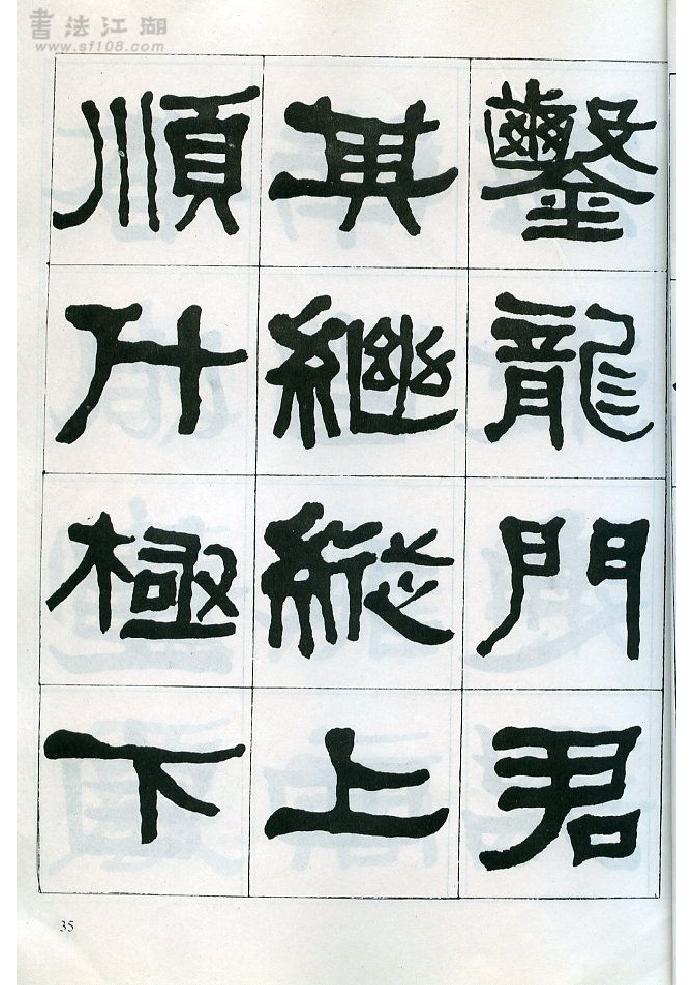 書法江湖
www.sf108.com
鑿龍門君
其繼縱上
順斗極下
35